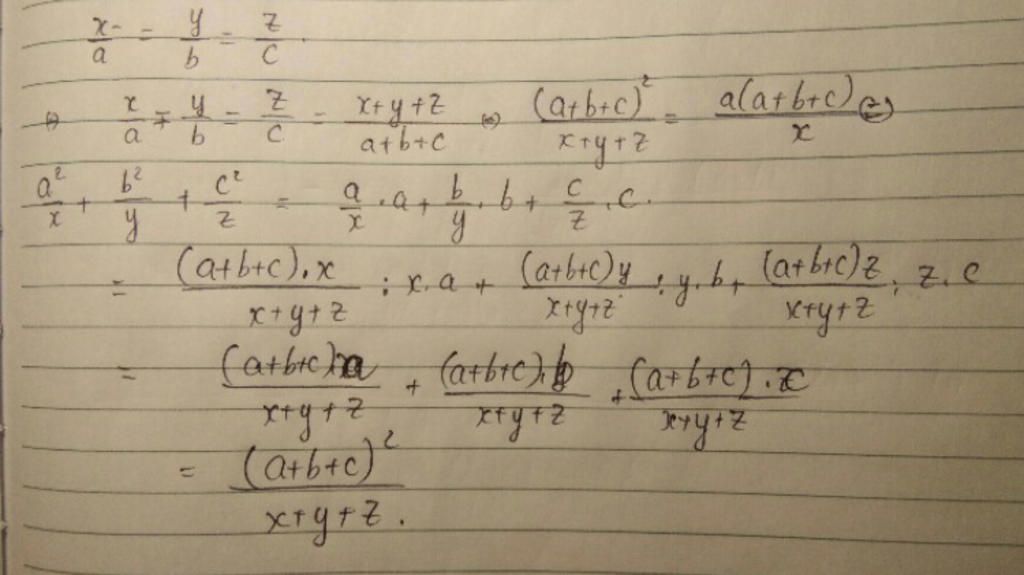 x/a = y/b = z/c .
⇔ x/a = y/b = z/c = x+y+z / a+b+c ⇔ (a+b+c)² / x+y+z = a(a+b+c) / x (=)
a²/x + b²/y + c²/z = a/x . a + b/y . b + c/z . c .
= (a+b+c).x / x+y+z : x . a + (a+b+c)y / x+y+z : y . b + (a+b+c)z / x+y+z : z . c
= (a+b+c).a / x+y+z + (a+b+c).b / x+y+z + (a+b+c).c / x+y+z
= (a+b+c)² / x+y+z .